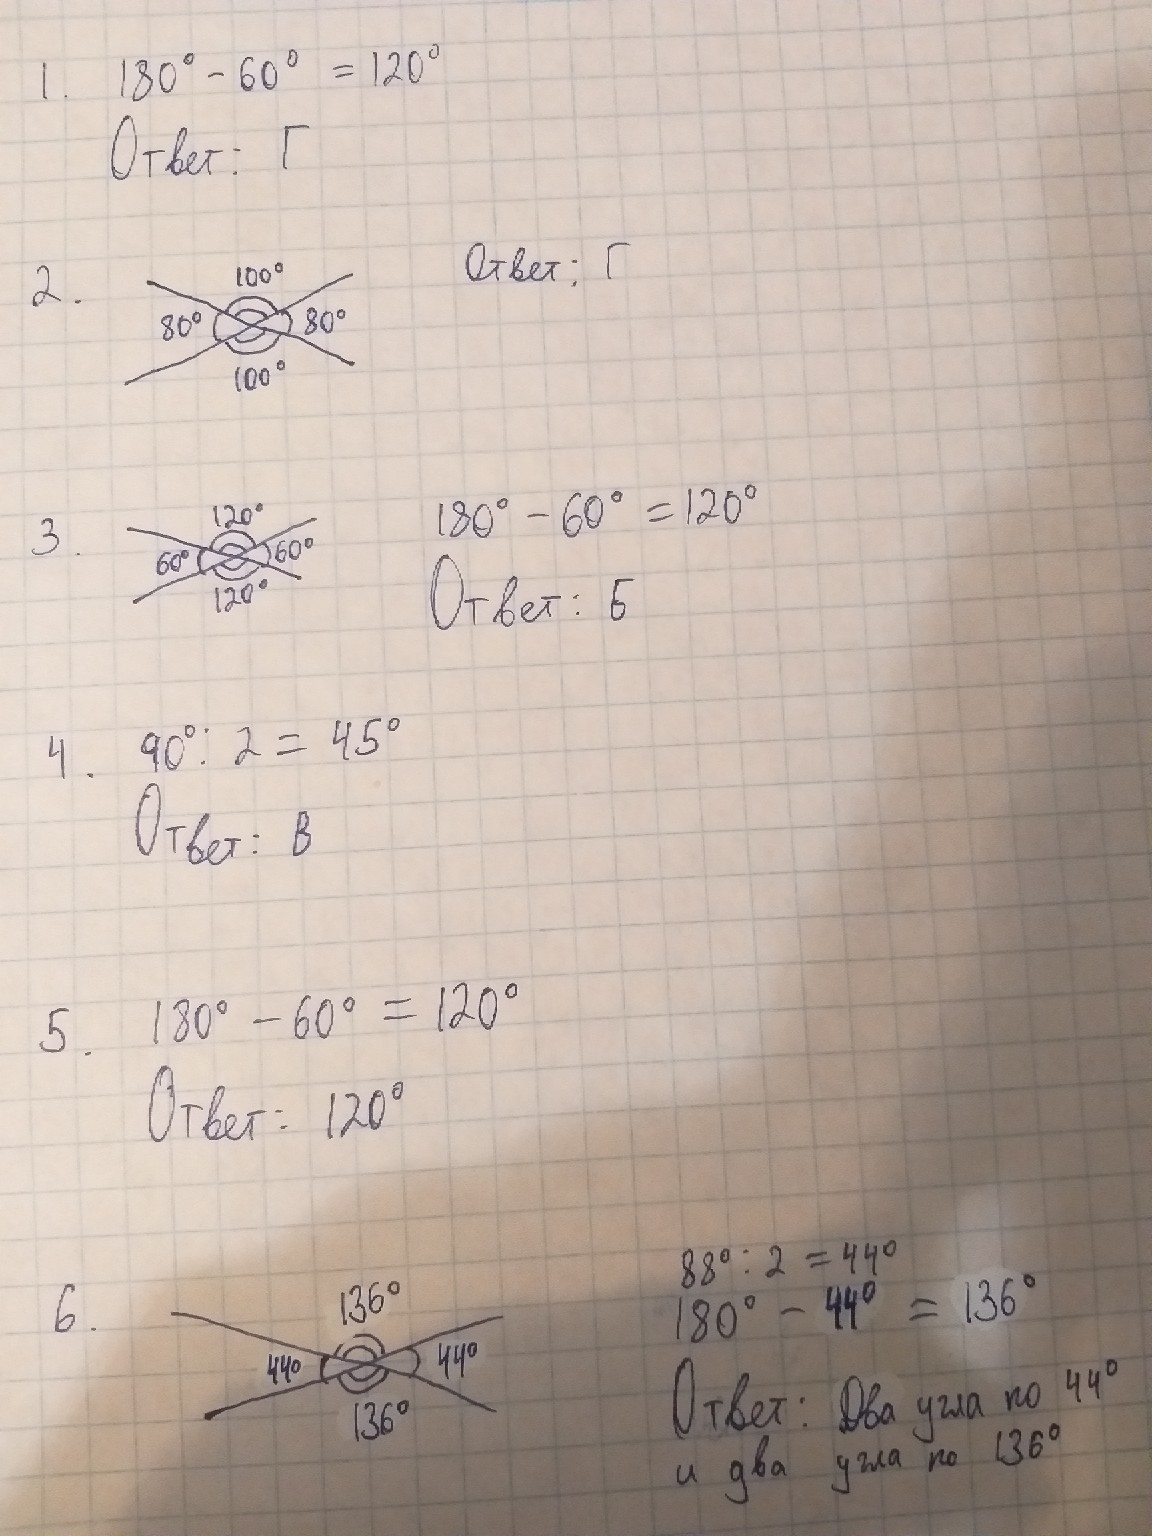 1. 180° - 60° = 120°
Ответ: Г
2. 100° 80° 80° 100°
Ответ: Г
3. 120° 60° 60° 120°
180° - 60° = 120°
Ответ: Б
4. 90° : 2 = 45°
Ответ: В
5. 180° - 60° = 120°
Ответ: 120°
6. 136° 44° 44° 136°
88° : 2 = 44°
180° - 44° = 136°
Ответ: Два угла по 44°
и два угла по 136°